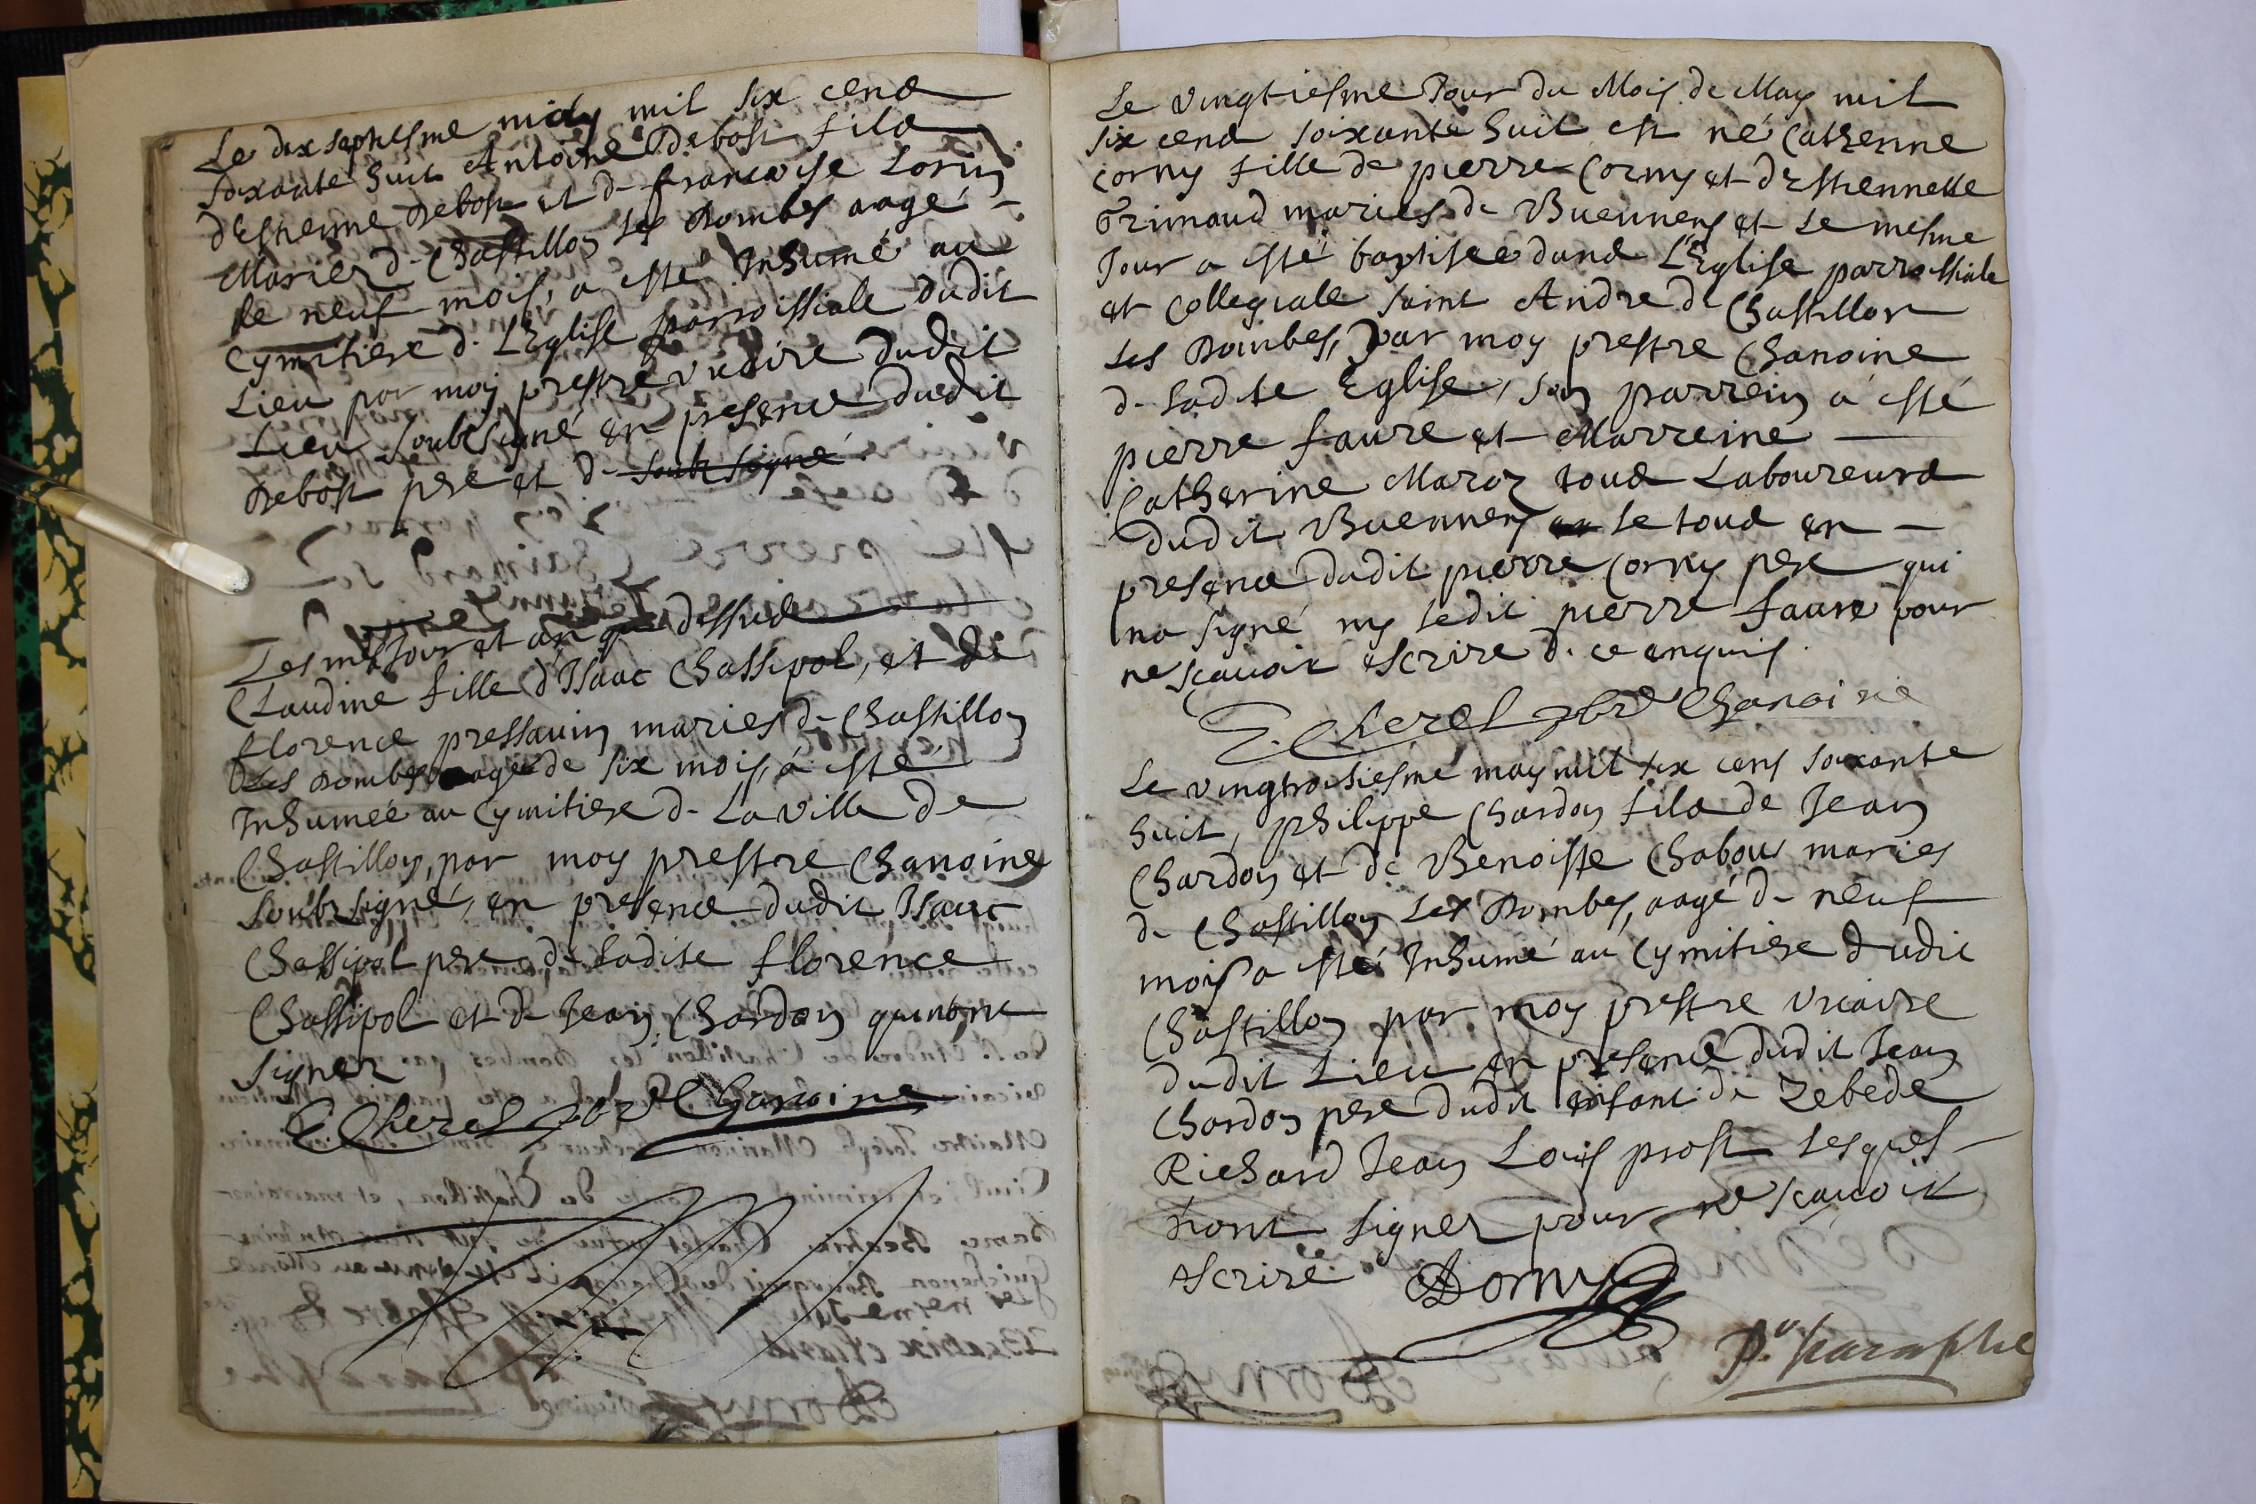 Le dix septiesme may mil six cens
soixante huit Antoine Debost fils
d'Estienne Debost et de francoise Lorin
Mariez de Chastillon Les Dombes aagé
de neuf mois, a esté Inhumé au
Cymitiere de L'Eglise parroissiale dudit
Lieu par moy prestre vicaire dudit
Lieu soubsigné en presence dudit
Debost pere et de soubsigné
Les mesme Jour et an que dessus
Claudine fille d'Isaac Chassipol, et de
florence pressavin maries de Chastillon
Les Dombes aagée de six mois, a esté
Inhumée au Cymitiere de La Ville de
Chastillon, par moy prestre Chanoine
soubsigné, en presence dudit Isaac
Chassipol pere de ladite florence
Chassipol et de Jean Chardon qui n'ont
signez
E Cherel pbre Chanoine
Le vingtiesme Jour du Mois de May mil
six cens soixante huit est né Catherine
Corny fille de pierre Corny et d'Estiennette
Grimaud maries de Buennens et Le mesme
Jour a esté baptisee dans L'Eglise parrossiale
et Collegiale saint André de Chastillon
Les Dombes, par moy prestre Chanoine
de ladite Eglise, son parrein a esté
pierre faure et Marreine
Catherine Maroz tous Laboureurs
dudit Buennens Le tous en
presence dudit pierre Corny pere qui
na signé ny ledit pierre faure pour
ne scavoir escrire de ce enquis.
E. Cherel pbre Chanoine
Le vingtroisiesme may mil six cens soixante
huit, philippe Chardon fils de Jean
Chardon et de Benoiste Chabou maries
de Chastillon Les Dombes, aagé de neuf
mois a esté Inhumé au Cymitiere dudit
Chastillon par moy prestre vicaire
dudit Lieu en presence dudit Jean
Chardon pere dudit enfant de Zebede
Richard Jean Louis prost Lesquels
n'ont signez pour ne scavoir
escrire
Dorny
p.r paraphe